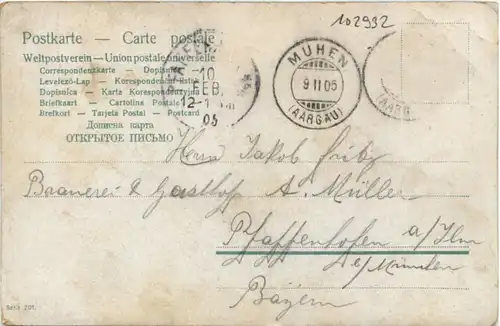 102932
Postkarte — Carte postale
Weltpostverein — Union postale universelle
Correspondenzkarte – Dopisnice
Levelező-Lap – Korespondenční lístek
Dopisnica – Karta Korespondencyjna
Briefkaart – Cartolina Postale
Brefkort – Tarjeta Postal – Postcard
Дописна карта
ОТКРЫТОЕ ПИСЬМО
10
FEB.
05
MUHEN
9 II 05
(AARGAU)
Herrn Jakob Fritz
Brauerei & Gasthof A. Müller
Pfaffenhofen a/Ilm
b/München
Bayern
Serie 201.